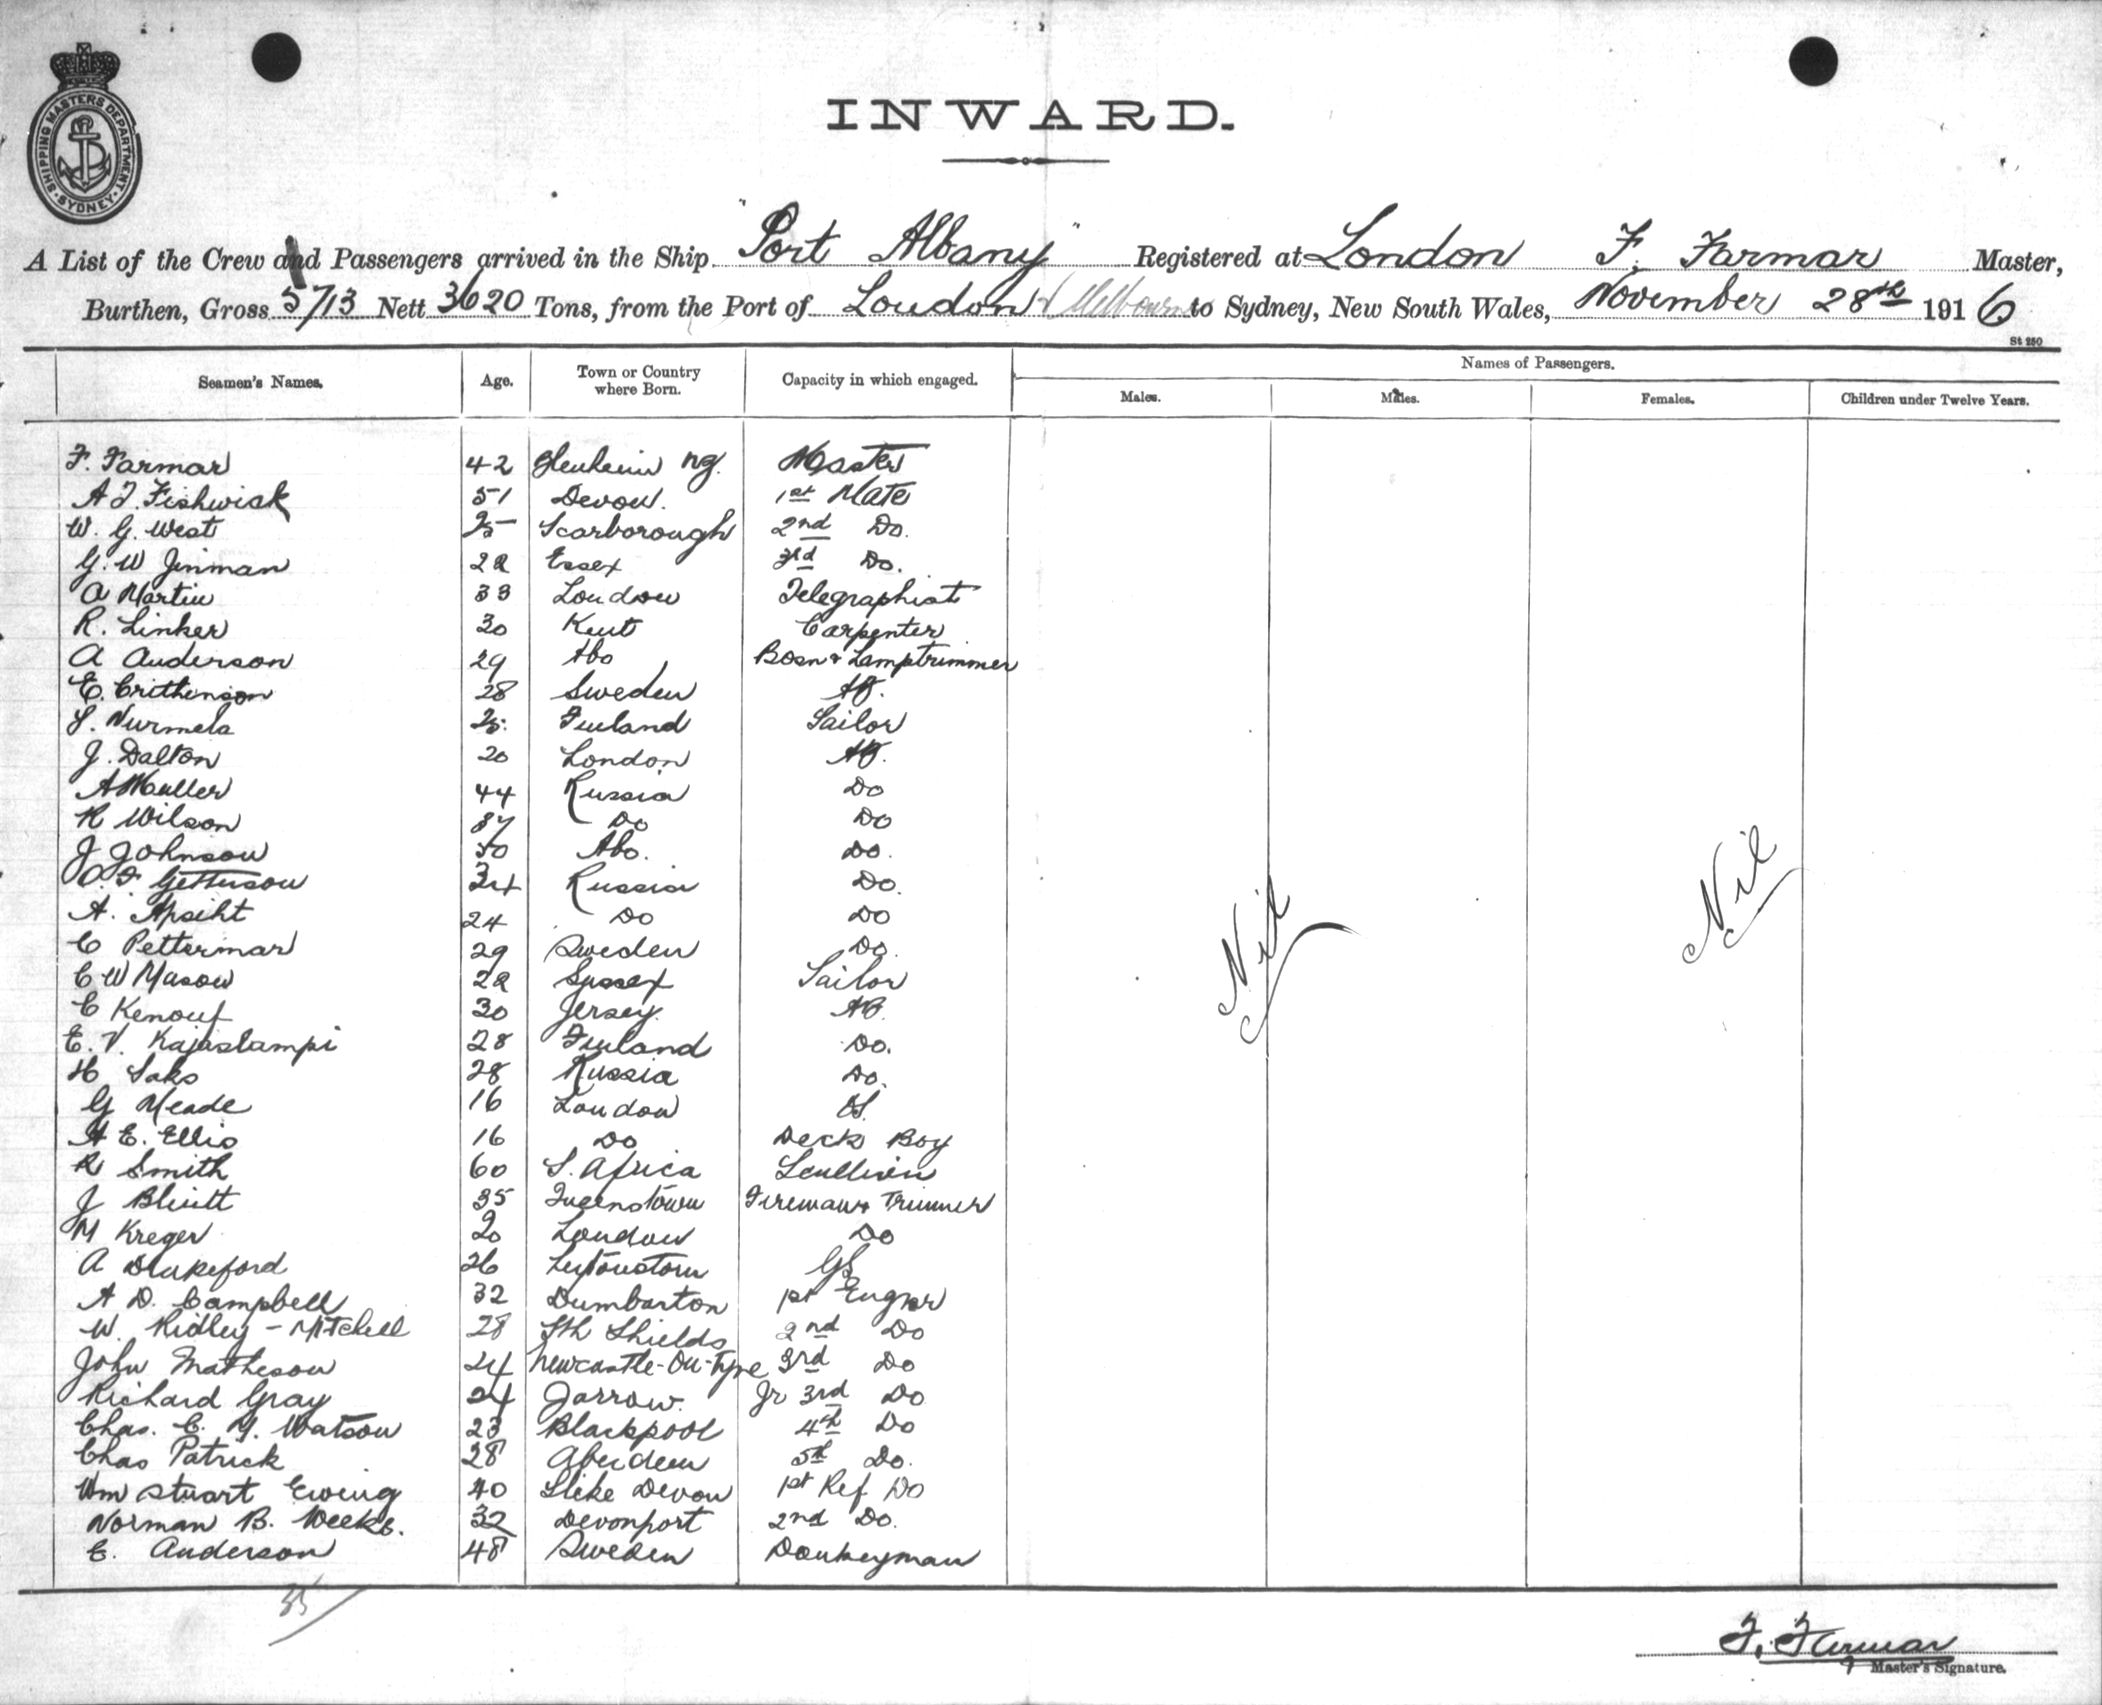 SHIPPING MASTERS DEPARTMENT SYDNEY
INWARD.
A List of the Crew and Passengers arrived in the Ship "Port Albany" Registered at London F. Farmar Master,
Burthen, Gross 5713 Nett 3620 Tons, from the Port of London & Melbourne to Sydney, New South Wales, November 28th 1916
St 250
Seamen's Names. Age. Town or Country where Born. Capacity in which engaged. Names of Passengers.
Males. Males. Females. Children under Twelve Years.
F. Farmar 42 Master
A J. Fishwick 51 Devon. 1st Mate
W. G. West Scarborough 2nd Do.
G. W Jinman 22 Essex 3rd Do.
A Martin 33 London Telegraphist
R. Linker 30 Kent Carpenter
A Anderson 29 Abo Bosn & Lamptrimmer
E. Crithenson 28 Sweden AB.
Nurmela Finland Sailor
J. Dalton 20 London AB.
A Muller 44 Russia Do
R Wilson 37 Do Do
J Johnson 50 Abo. Do.
Getterson 34 Russia Do.
A. Apsiht 24 Do Do
C Petterman 29 Sweden Do.
C W Mason 22 Sussex Sailor
C Kenouf 30 Jersey AB.
E. V. Kajaslampi 28 Finland Do.
H Saks 28 Russia Do.
G Meade 16 London OS.
A E. Ellis 16 Do Deck Boy
R Smith 60 S. Africa Scullion
J Bluitt 35 Queenstown Fireman & Trimmer
M Kreger 20 London Do
A Drakeford 26 Leytonstone GS
A D. Campbell 32 Dumbarton 1st Engnr
W. Ridley - Mitchell 28 Sth Shields 2nd Do
John Matheson 24 Newcastle-On-Tyne 3rd Do
Richard Gray 24 Jarrow. Jr 3rd Do
Chas. C. Y. Watson 23 Blackpool 4th Do
Chas Patrick 28 Aberdeen 5th Do.
Wm Stuart Ewing 40 Devon 1st Ref Do
Norman B. Weeks. 32 Devonport 2nd Do.
E. Anderson 48 Sweden Donkeyman
Nil
Nil
35
F. Farmar
Master's Signature.